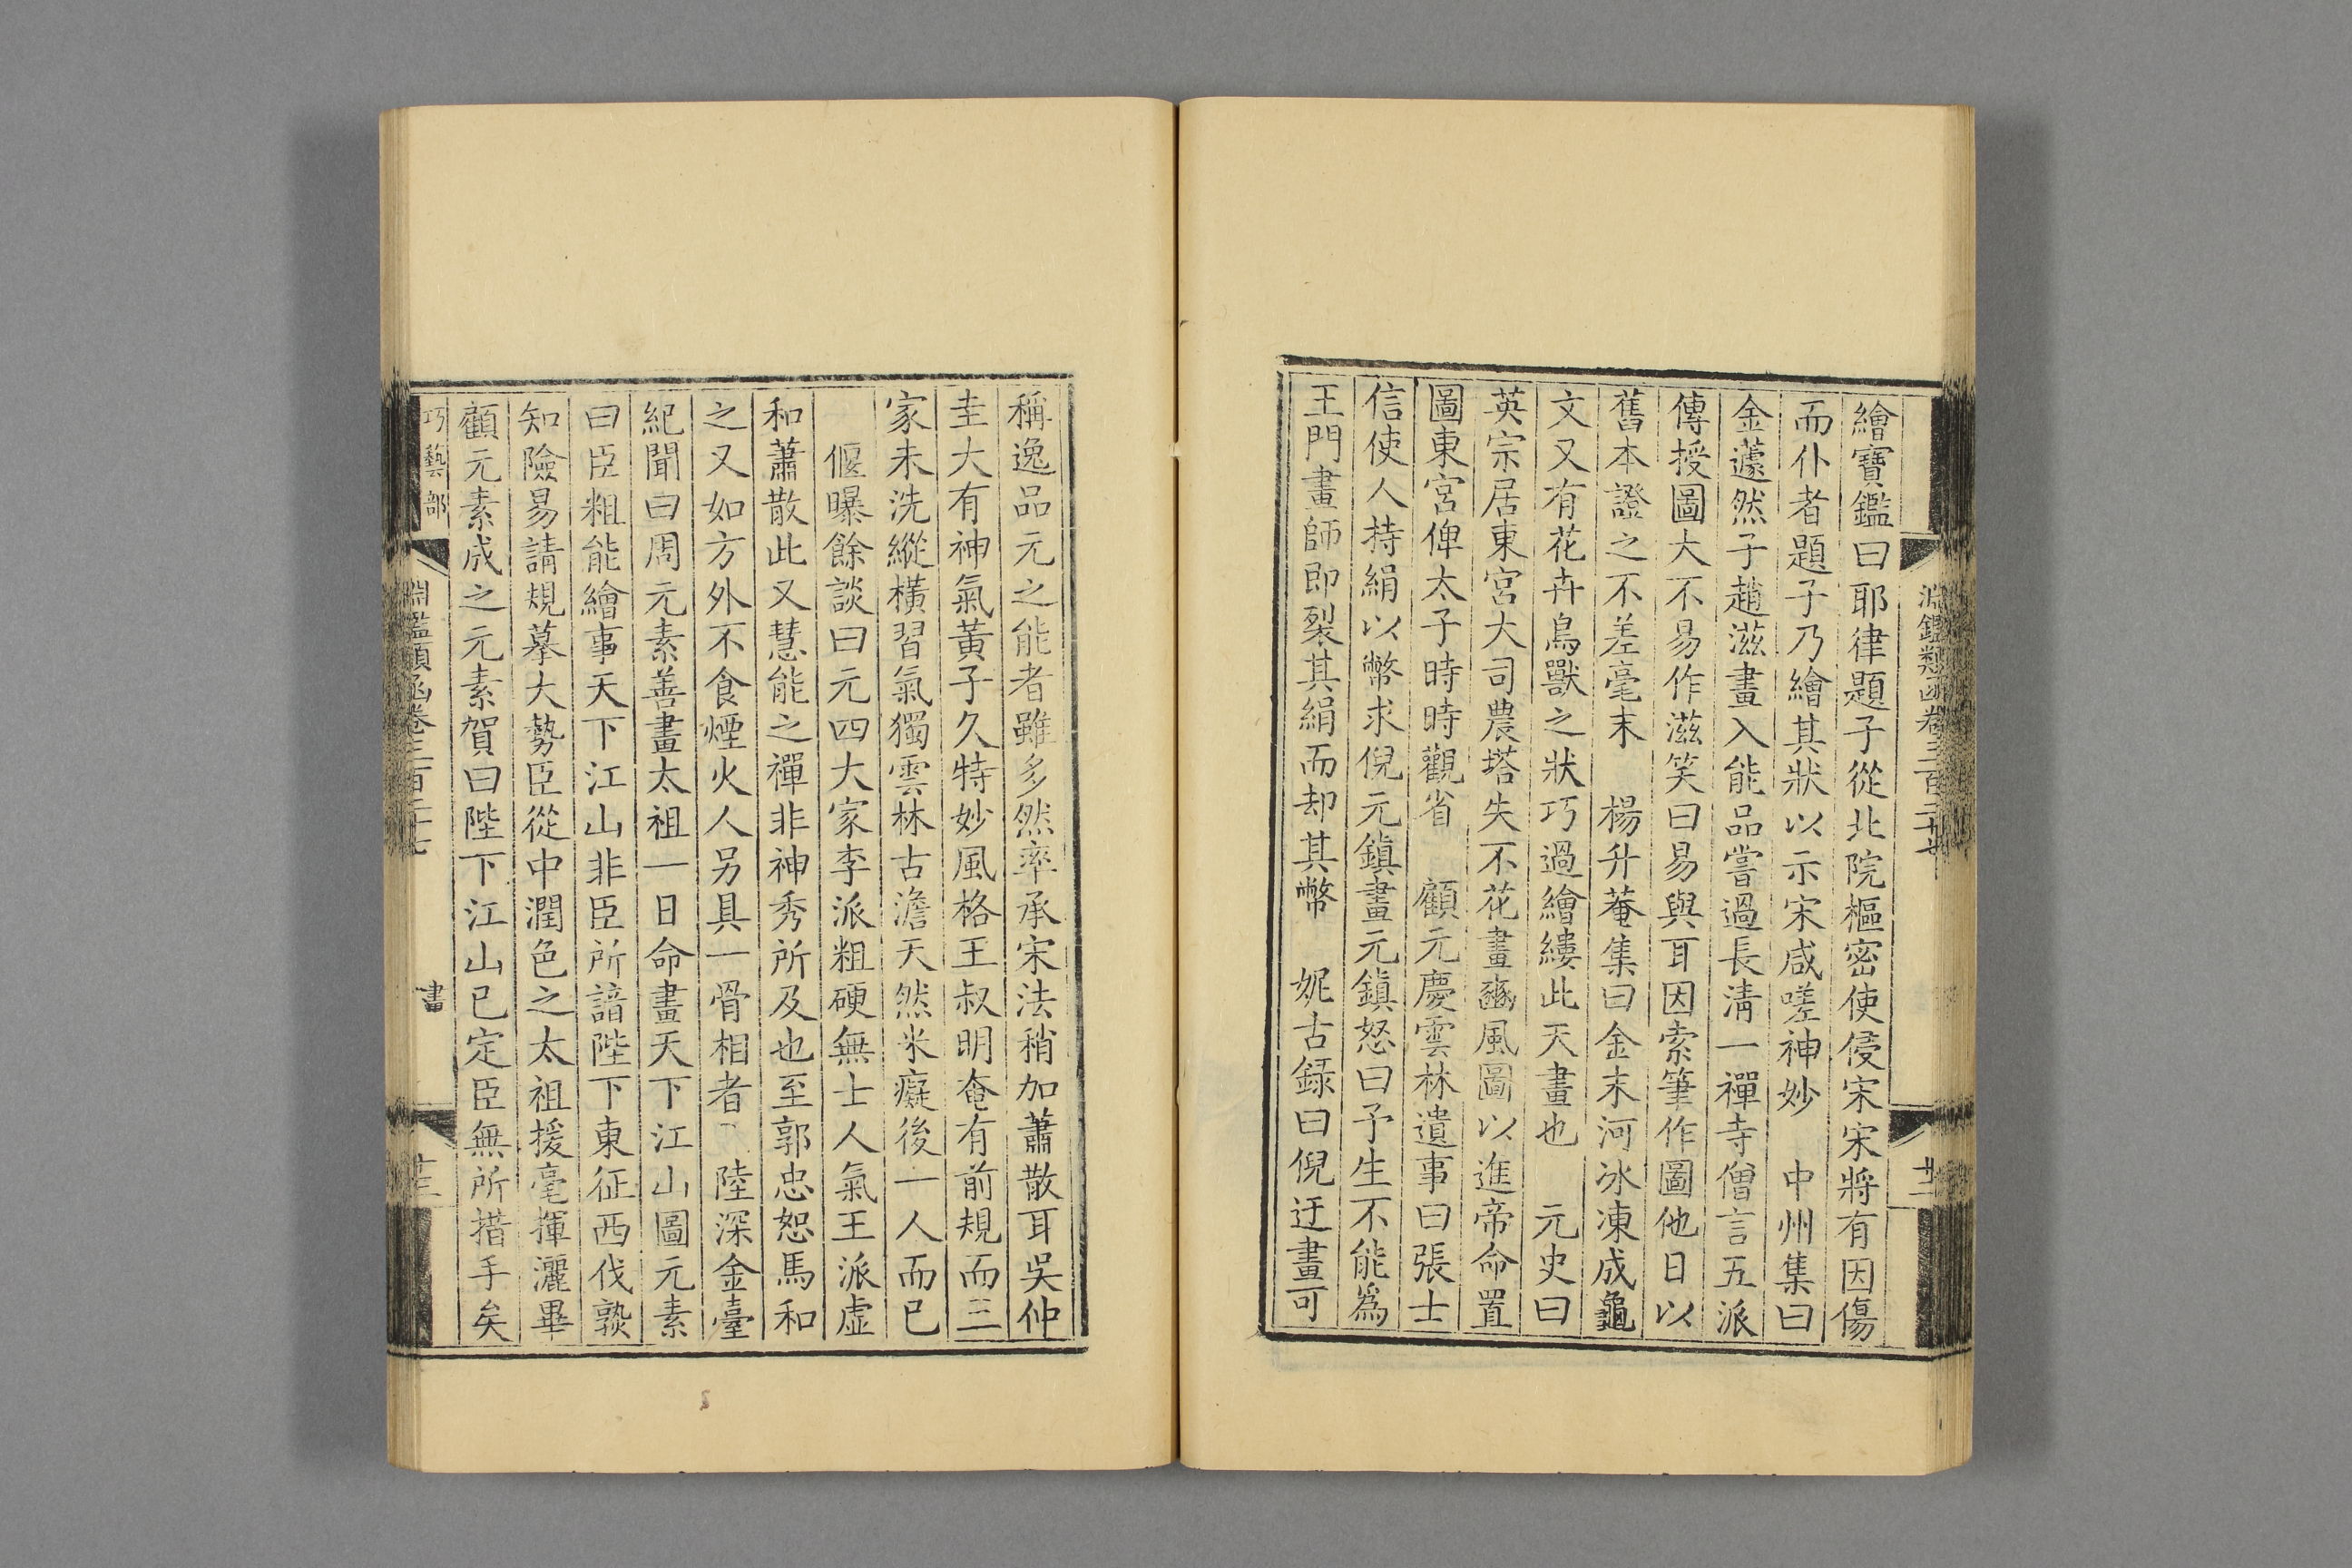 淵鑑類函卷三百二十七
廿二
繪寶鑑曰耶律題子從北院樞密使侵宋宋將有因傷
而仆者題子乃繪其狀以示宋咸嗟神妙　中州集曰
金蘧然子趙滋畫入能品嘗過長清一禪寺僧言五派
傳授圖大不易作滋笑曰易與耳因索筆作圖他日以
舊本證之不差毫末　楊升菴集曰金末河冰凍成龜
文又有花卉鳥獸之狀巧過繪縷此天畫也　元史曰
英宗居東宮大司農塔失不花畫豳風圖以進帝命置
圖東宮俾太子時時觀省　顧元慶雲林遺事曰張士
信使人持絹以幣求倪元鎮畫元鎮怒曰予生不能為
王門畫師即裂其絹而却其幣　妮古録曰倪迂畫可
稱逸品元之能者雖多然率承宋法稍加蕭散耳吳仲
圭大有神氣黃子久特妙風格王叔明奄有前規而三
家未洗縱橫習氣獨雲林古澹天然米癡後一人而已
偃曝餘談曰元四大家李派粗硬無士人氣王派虛
和蕭散此又慧能之禪非神秀所及也至郭忠恕馬和
之又如方外不食煙火人另具一骨相者　陸深金臺
紀聞曰周元素善畫太祖一日命畫天下江山圖元素
曰臣粗能繪事天下江山非臣所諳陛下東征西伐熟
知險易請規摹大勢臣從中潤色之太祖援毫揮灑畢
顧元素成之元素賀曰陛下江山已定臣無所措手矣
巧藝部
淵鑑類函卷三百二十七
畫